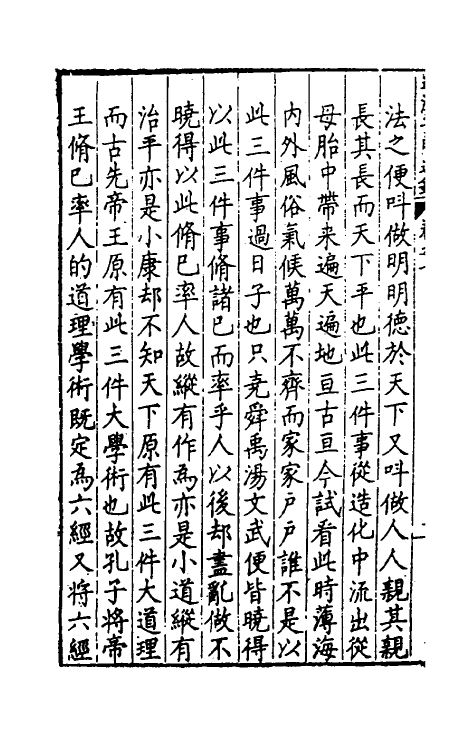 法之便呌做明明德於天下又呌做人人親其親
長其長而天下平也此三件事從造化中流出從
母胎中帶来遍天遍地亘古亘今試看此時薄海
内外風俗氣候萬萬不齊而家家戶戶誰不是以
此三件事過日子也只堯舜禹湯文武便皆曉得
以此三件事脩諸已而率乎人以後却盡亂做不
曉得以此脩已率人故縱有作為亦是小道縱有
治平亦是小康却不知天下原有此三件大道理
而古先帝王原有此三件大學術也故孔子將帝
王脩已率人的道理學術既定為六經又將六經